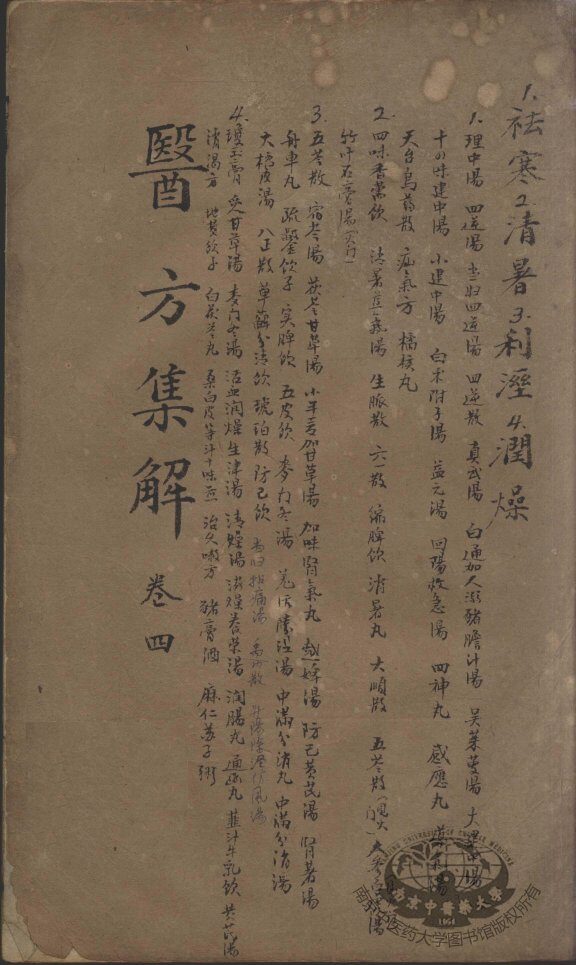 1.祛寒2.清暑3.利溼4.潤燥
1.理中湯 四逆湯 当归四逆湯 四逆散 真武湯 白通加人溺豬膽汁湯 吴茱萸湯 大建中湯
十四味建中湯 小建中湯 白朮附子湯 益元湯 回陽救急湯 四神丸 感應丸
天台烏藥散 疝氣方 橘核丸
2.四味香薷飲 清暑益氣湯 生脈散 六一散 縮脾飲 消暑丸 大順散 五苓散
竹叶石膏湯
3.五苓散 猪苓湯 茯苓甘草湯 小半夏加甘草湯 加味腎氣丸 越婢湯 防己黄芪湯 腎着湯
舟車丸 疏鑿飲子 实脾飲 五皮飲 麥门冬湯 羌活勝溼湯 中滿分消丸 中滿分消湯
大橘皮湯 八正散 萆薢分清飲 琥珀散 防己飲 当归拈痛湯 禹功散 升陽除溼防风湯
4.瓊玉膏 炙甘草湯 麥门冬湯 活血润燥生津湯 清燥湯 滋燥養榮湯 润腸丸 通幽丸 韭汁牛乳飲 黄芪湯
消渴方 地黄飲子 白茯苓丸 桑白皮等汁十味煎 治久嗽方 豬膏酒 麻仁苏子粥
醫方集解 卷四
南京中醫藥大學
1954
南京中医药大学图书馆版权所有